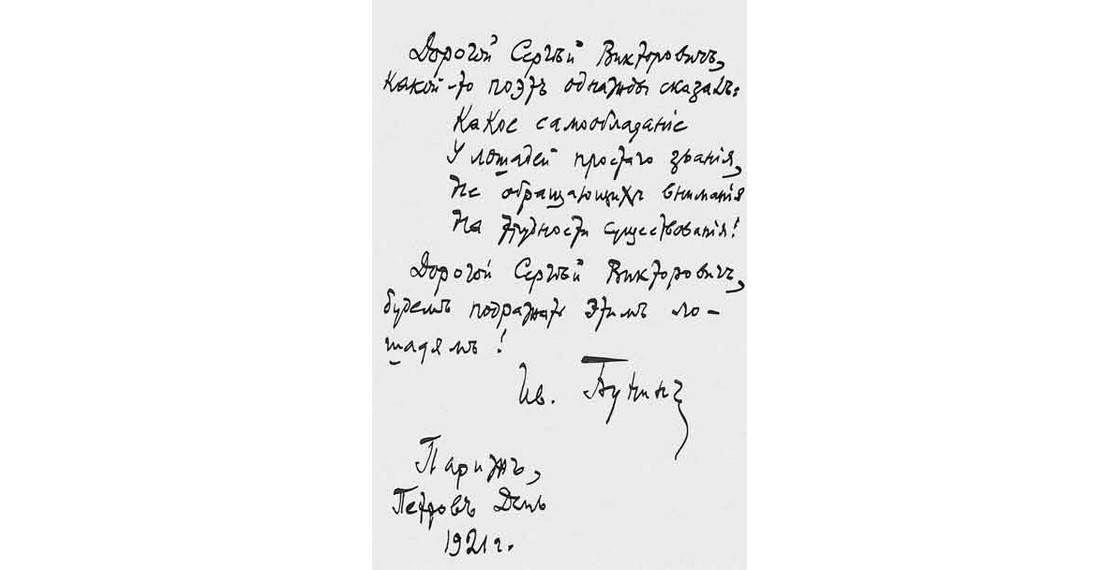 Дорогой Сергѣй Викторовичъ,
Какой-то поэтъ однажды сказалъ:
Какое самообладанiе
У лошадей простого званiя,
Не обращающихъ вниманiя
На трудности существованiя!
Дорогой Сергѣй Викторовичъ,
будемъ подражать этимъ ло-
шадямъ!
Ив. Бунинъ
Парижъ,
Петровъ День
1921 г.